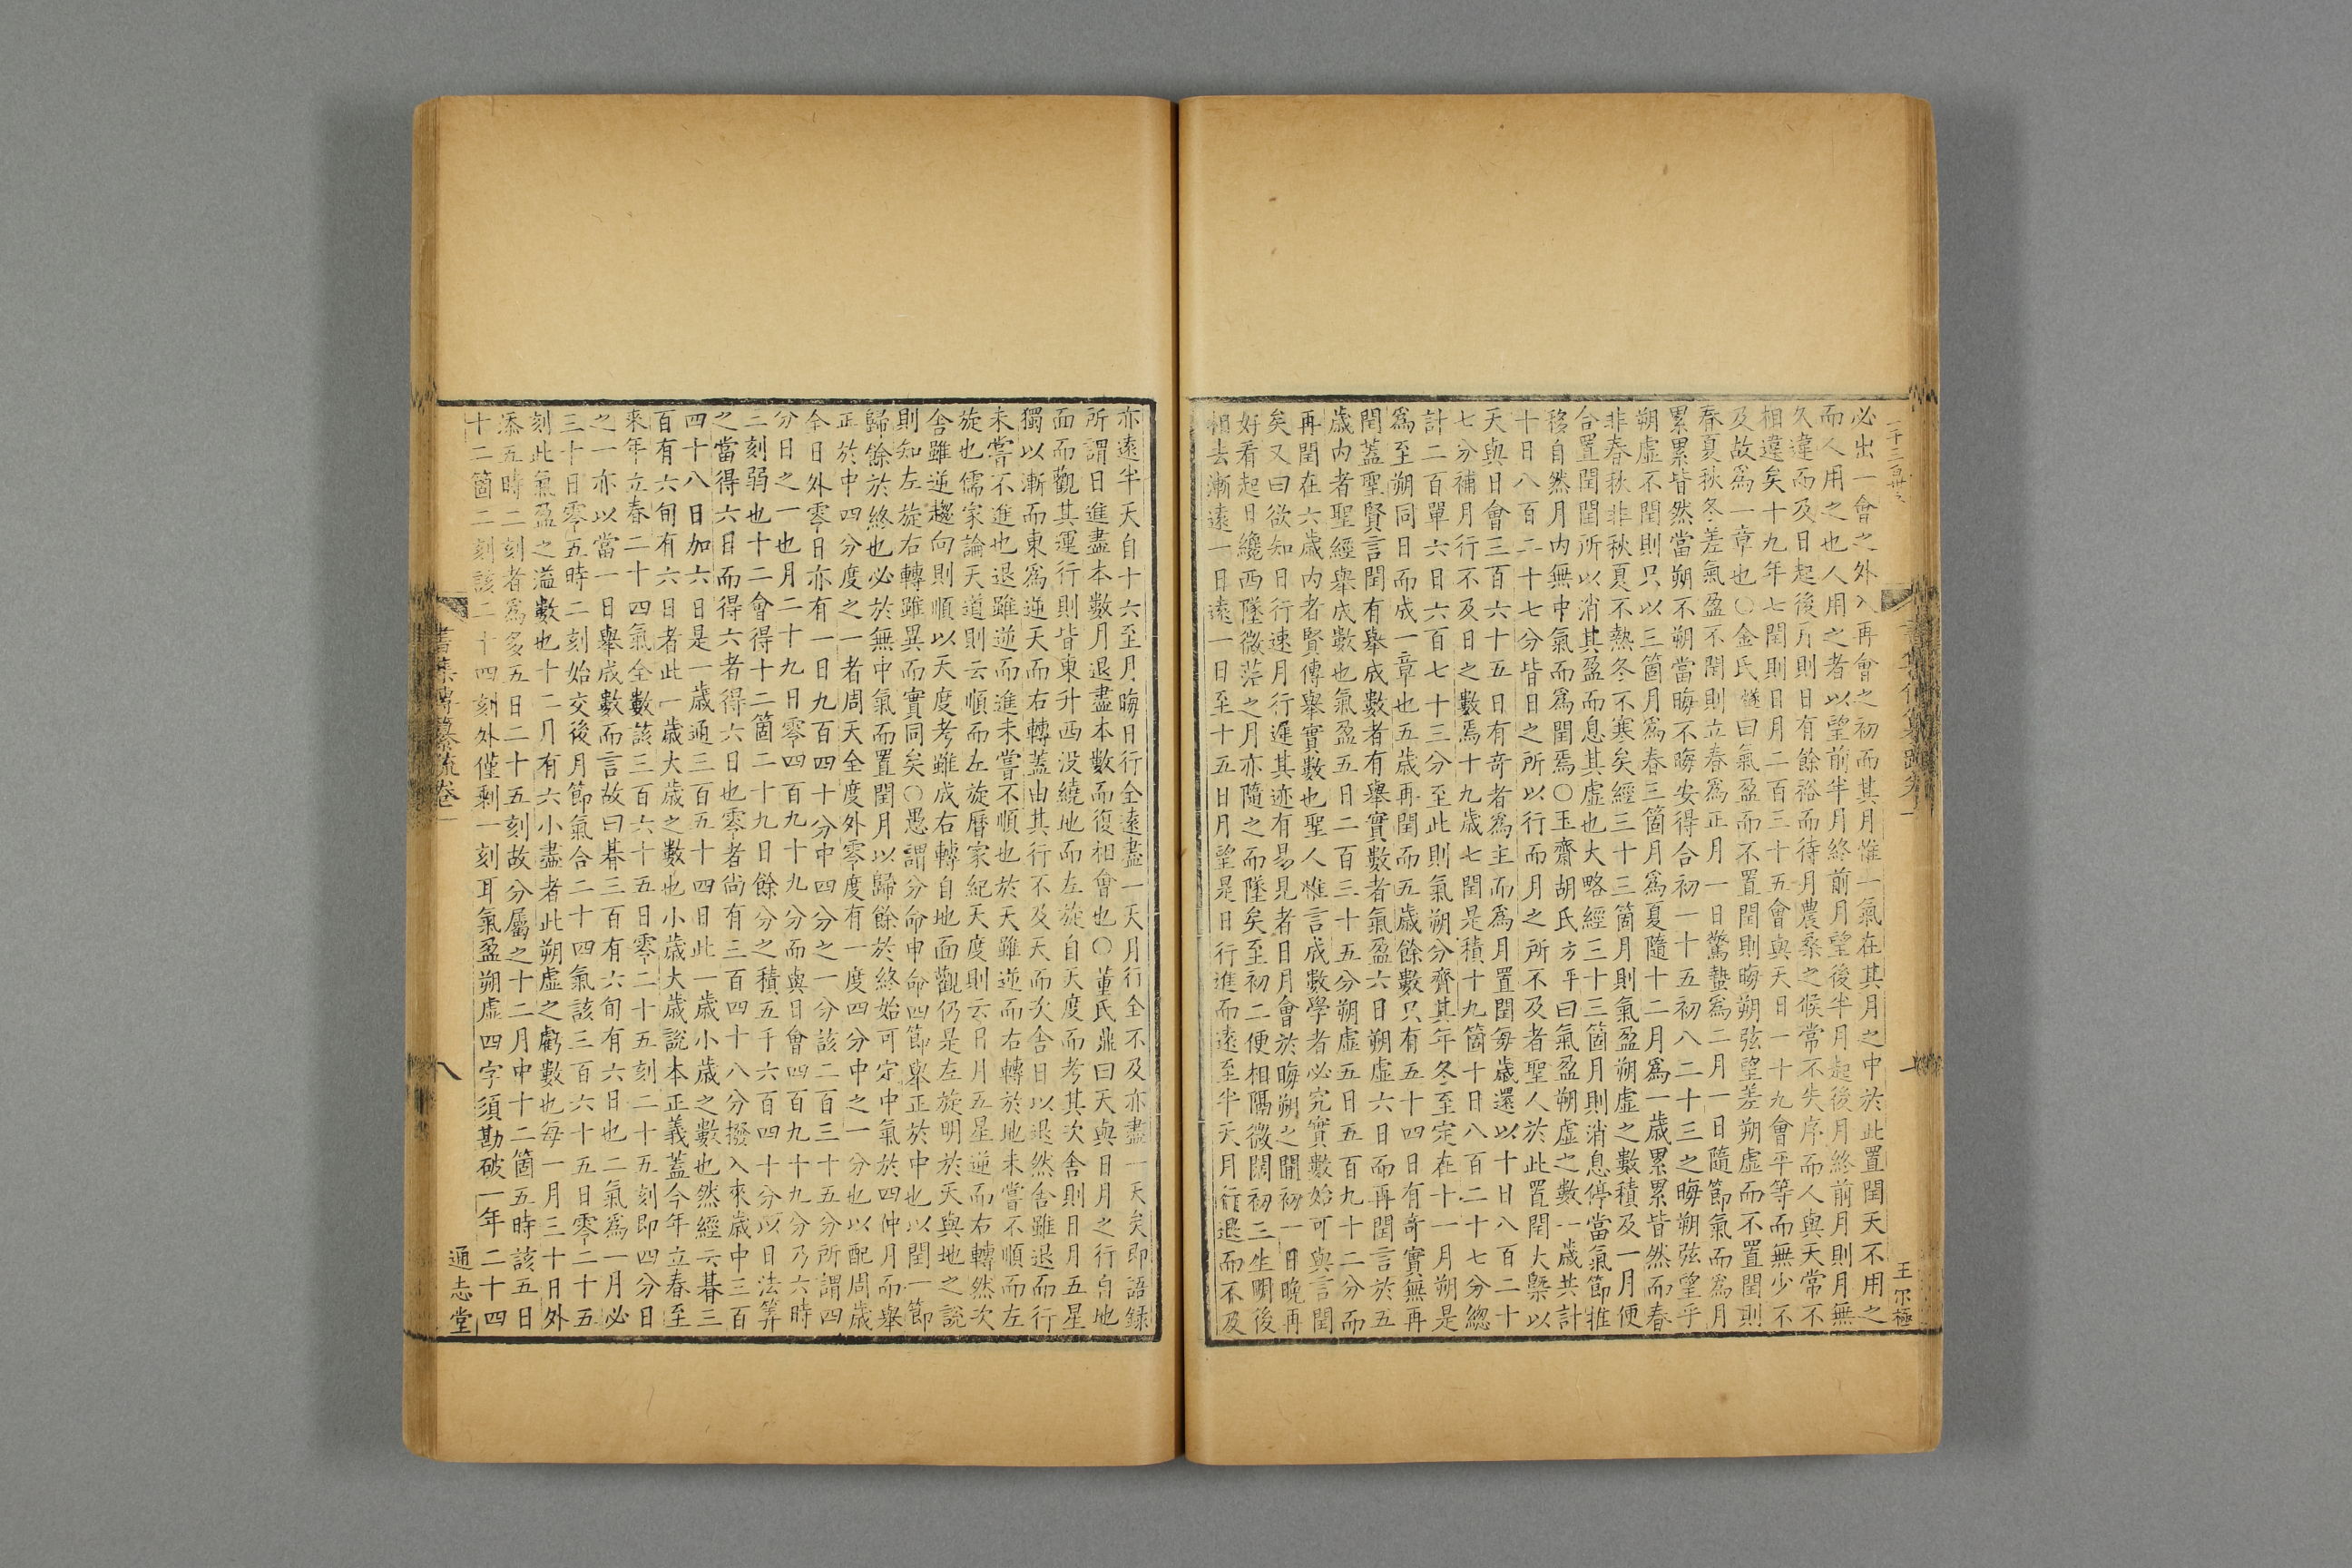 必出一會之外入再會之初而其月惟一氣在其月之中於此置閏天不用之
而人用之也人用之者以望前半月終前月望後半月起後月終前月則月無
久違而及日起後月則日有餘裕而待月農桑之候常不失序而人與天常不
相違矣十九年七閏則日月二百三十五會與天日一十九會平等而無少不
及故爲一章也○金氏燧曰氣盈而不置閏則晦朔弦望差朔虛而不置閏則
春夏秋冬差氣盈不閏則立春爲正月一日驚蟄爲二月一日隨節氣而爲月
累累皆然當朔不朔當晦不晦安得合初一十五初八二十三之晦朔弦望乎
朔虛不閏則只以三箇月爲春三箇月爲夏隨十二月爲一歲累累皆然而春
非春秋非秋夏不熱冬不寒矣經三十三箇月則氣盈朔虛之數積及一月便
合置閏閏所以消其盈而息其虛也大略經三十三箇月則消息停當氣節推
移自然月内無中氣而爲閏焉○玉齋胡氏方平曰氣盈朔虛之數一歲共計
十日八百二十七分皆日之所以行而月之所不及者聖人於此置閏大槩以
天與日會三百六十五日有奇者爲主而爲月置閏每歲還以十日八百二十
七分補月行不及日之數焉十九歲七閏是積十九箇十日八百二十七分總
計二百單六日六百七十三分至此則氣朔分齊其年冬至定在十一月朔是
爲至朔同日而成一章也五歲再閏而五歲餘數只有五十四日有奇實無再
閏蓋聖賢言閏有舉成數者有舉實數者氣盈六日朔虛六日而再閏言於五
歲内者聖經舉成數也氣盈五日二百三十五分朔虛五日五百九十二分而
再閏在六歲内者賢傳舉實數也聖人惟言成數學者必究實數始可與言閏
矣又曰欲知日行速月行遲其迹有易見者日月會於晦朔之間初一日晚再
好看起日纔西墜微茫之月亦隨之而墜矣至初二便相隔微闊初三生明後
相去漸遠一日遠一日至十五日月望是日行進而遠至半天月行退而不及
王爾極
亦遠半天自十六至月晦日行全遠盡一天月行全不及亦盡一天矣即語録
所謂日進盡本數月退盡本數而復相會也○董氏鼎曰天與日月之行自地
面而觀其運行則皆東升西没繞地而左旋自天度而考其次舍則日月五星
獨以漸而東爲逆天而右轉蓋由其行不及天而次舍日以退然舍雖退而行
未嘗不進也退雖逆而進未嘗不順也於天雖逆而右轉於地未嘗不順而左
旋也儒家論天道則云順而左旋曆家紀天度則云日月五星逆而右轉然次
舍雖逆趨向則順以天度考雖成右轉自地面觀仍是左旋明於天與地之說
則知左旋右轉雖異而實同矣○愚謂分命申命四節舉正於中也以閏一節
歸餘於終也必於無中氣而置閏月以歸餘於終始可定中氣於四仲月而舉
正於中四分度之一者周天全度外零度有一度四分中之一分也以配周歲
全日外零日亦有一日九百四十分中四分之一分該二百三十五分所謂四
分日之一也月二十九日零四百九十九分而與日會四百九十九分乃六時
三刻弱也十二會得十二箇二十九日餘分之積五千六百四十分以日法筭
之當得六日而得六者得六日也零者尚有三百四十八分撥入來歲中三百
四十八日加六日是一歲通三百五十四日此一歲小歲之數也然經云朞三
百有六旬有六日者此一歲大歲之數也小歲大歲說本正義蓋今年立春至
來年立春二十四氣全數該三百六十五日零二十五刻二十五刻即四分日
之一亦以當一日舉成數而言故曰朞三百有六旬有六日也二氣爲一月必
三十日零五時二刻始交後月節氣合二十四氣該三百六十五日零二十五
刻此氣盈之溢數也十二月有六小盡者此朔虛之虧數也每一月三十日外
添五時二刻者爲多五日二十五刻故分屬之十二月中十二箇五時該五日
十二箇二刻該二十四刻外僅剩一刻耳氣盈朔虛四字須勘破一年二十四
書集傳纂疏卷一
八
通志堂